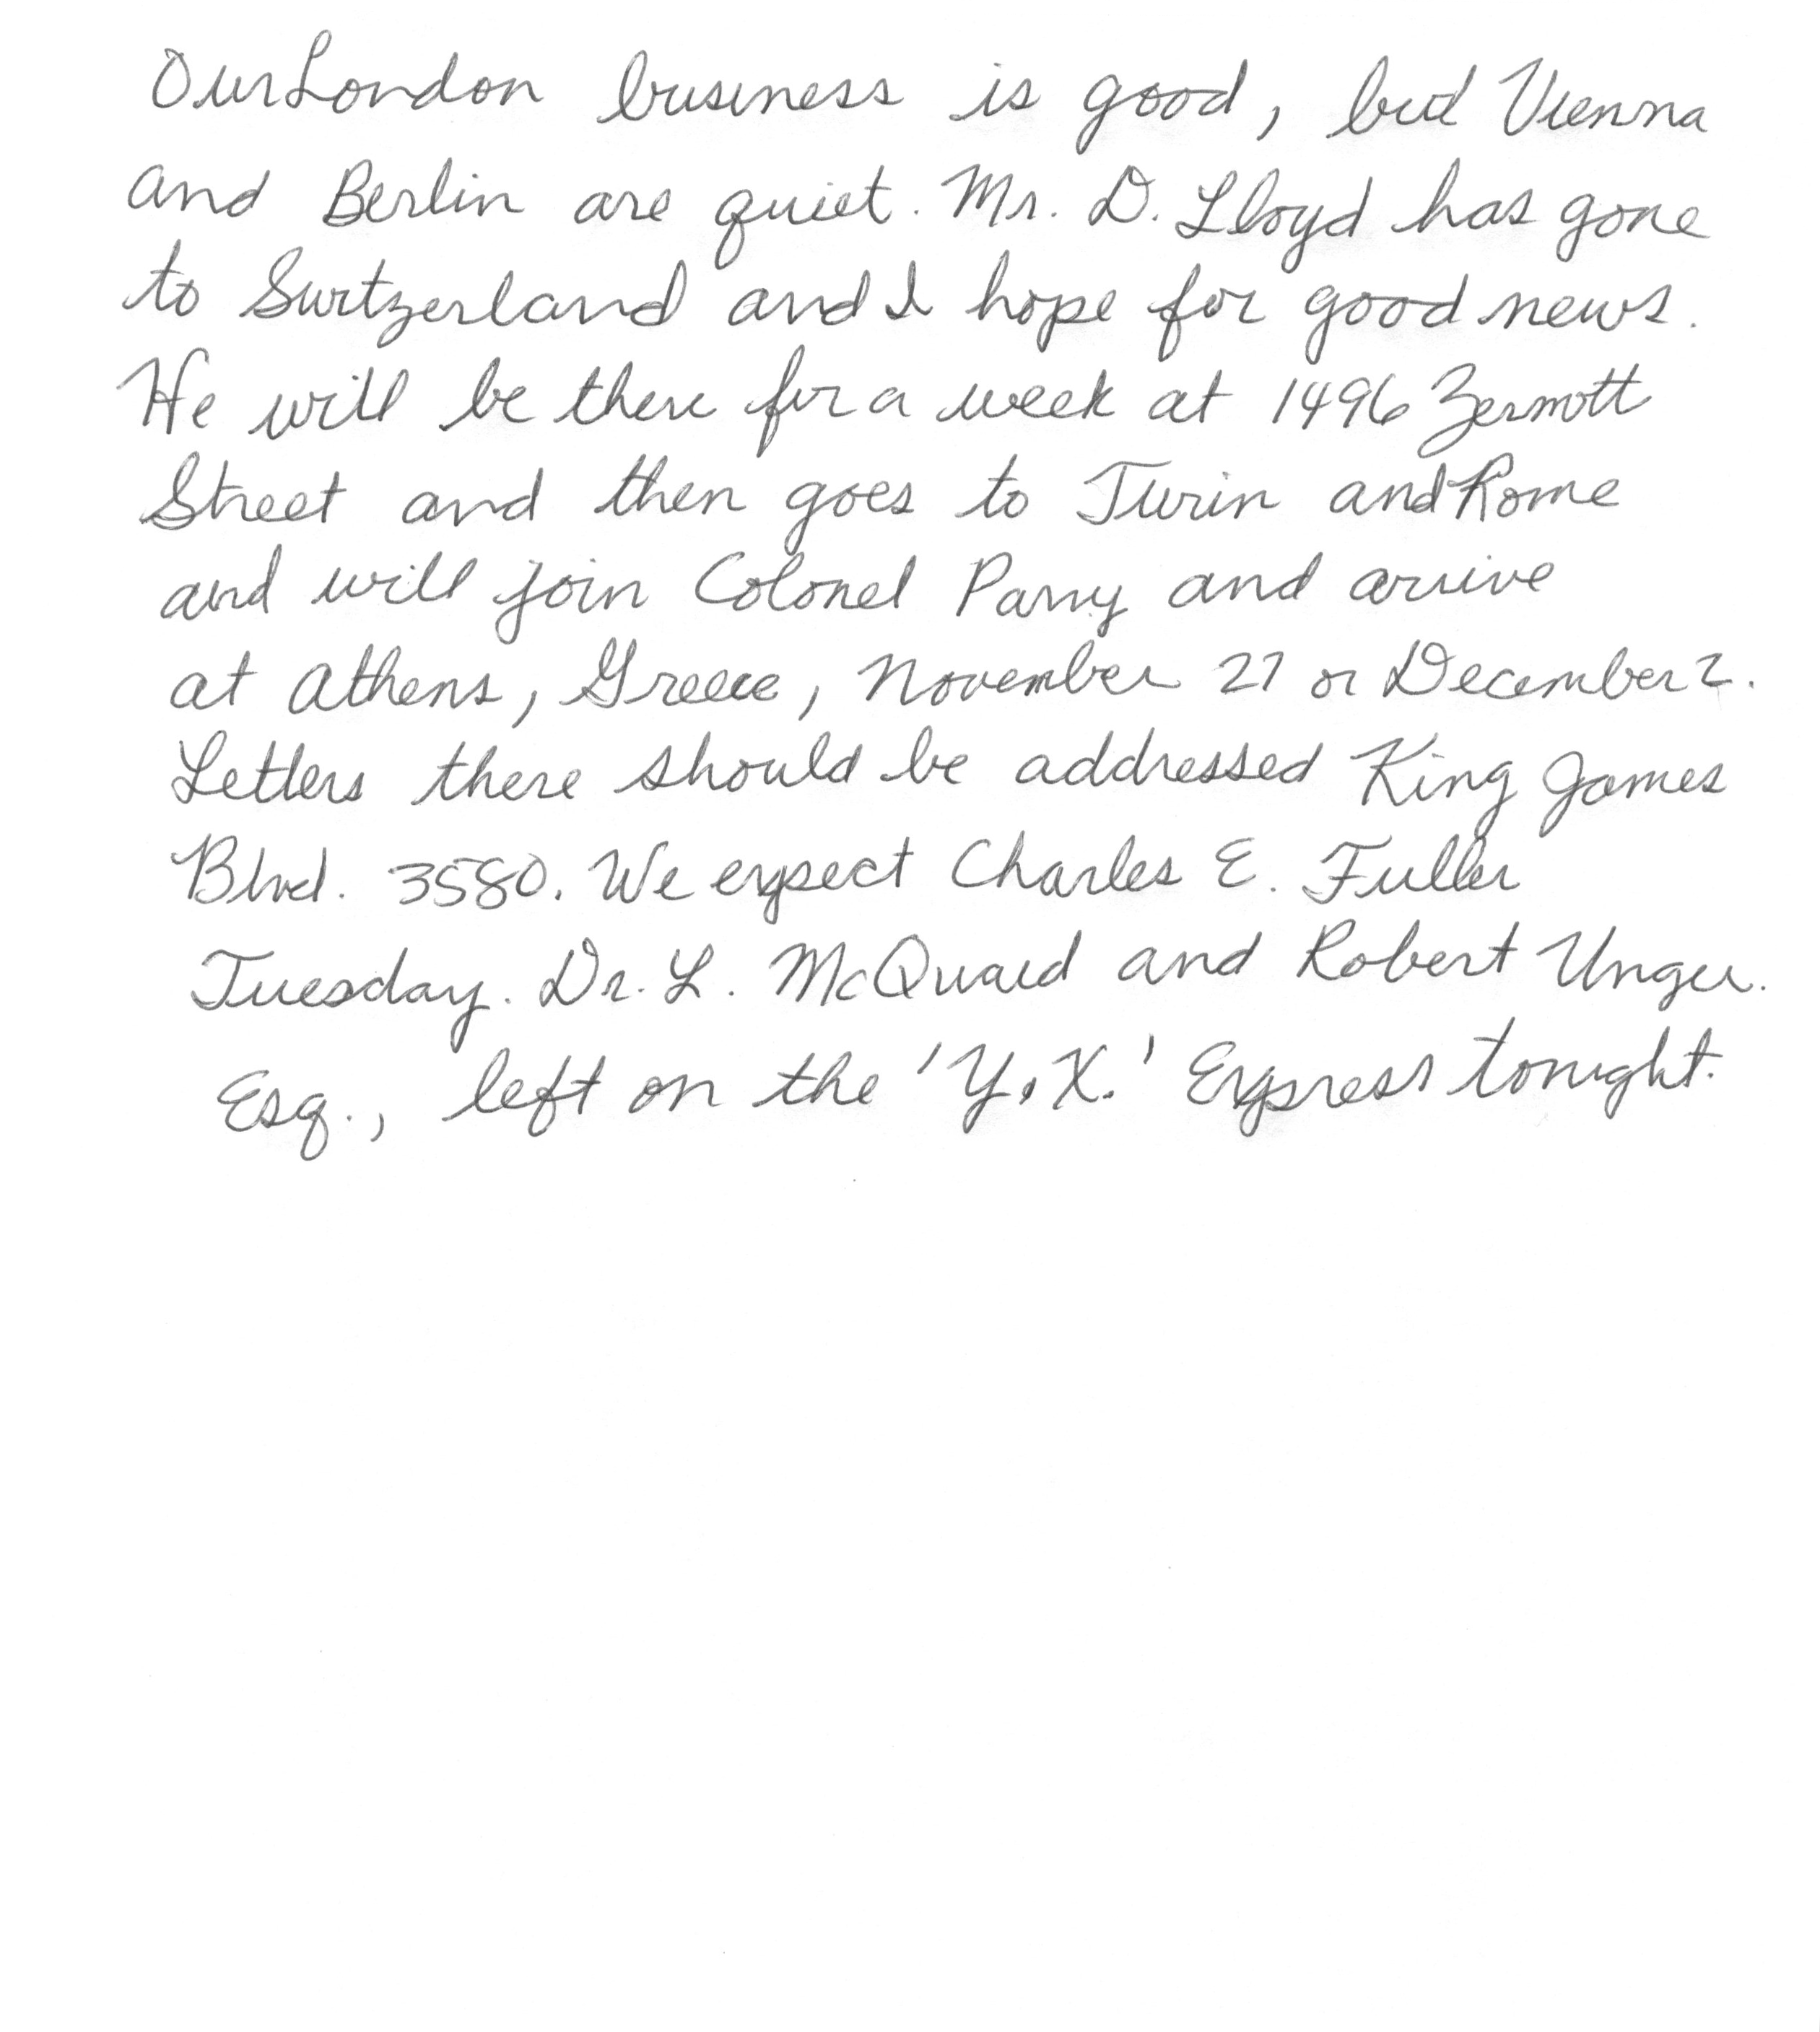 Our London business is good, but Vienna
and Berlin are quiet. Mr. D. Lloyd has gone
to Switzerland and I hope for good news.
He will be there for a week at 1496 Zermott
Street and then goes to Turin and Rome
and will join Colonel Parry and arrive
at Athens, Greece, November 27 or December 2.
Letters there should be addressed King James
Blvd. 3580. We expect Charles E. Fuller
Tuesday. Dr. L. McQuaid and Robert Unger.
Esq., left on the 'Y.X.' Express tonight.